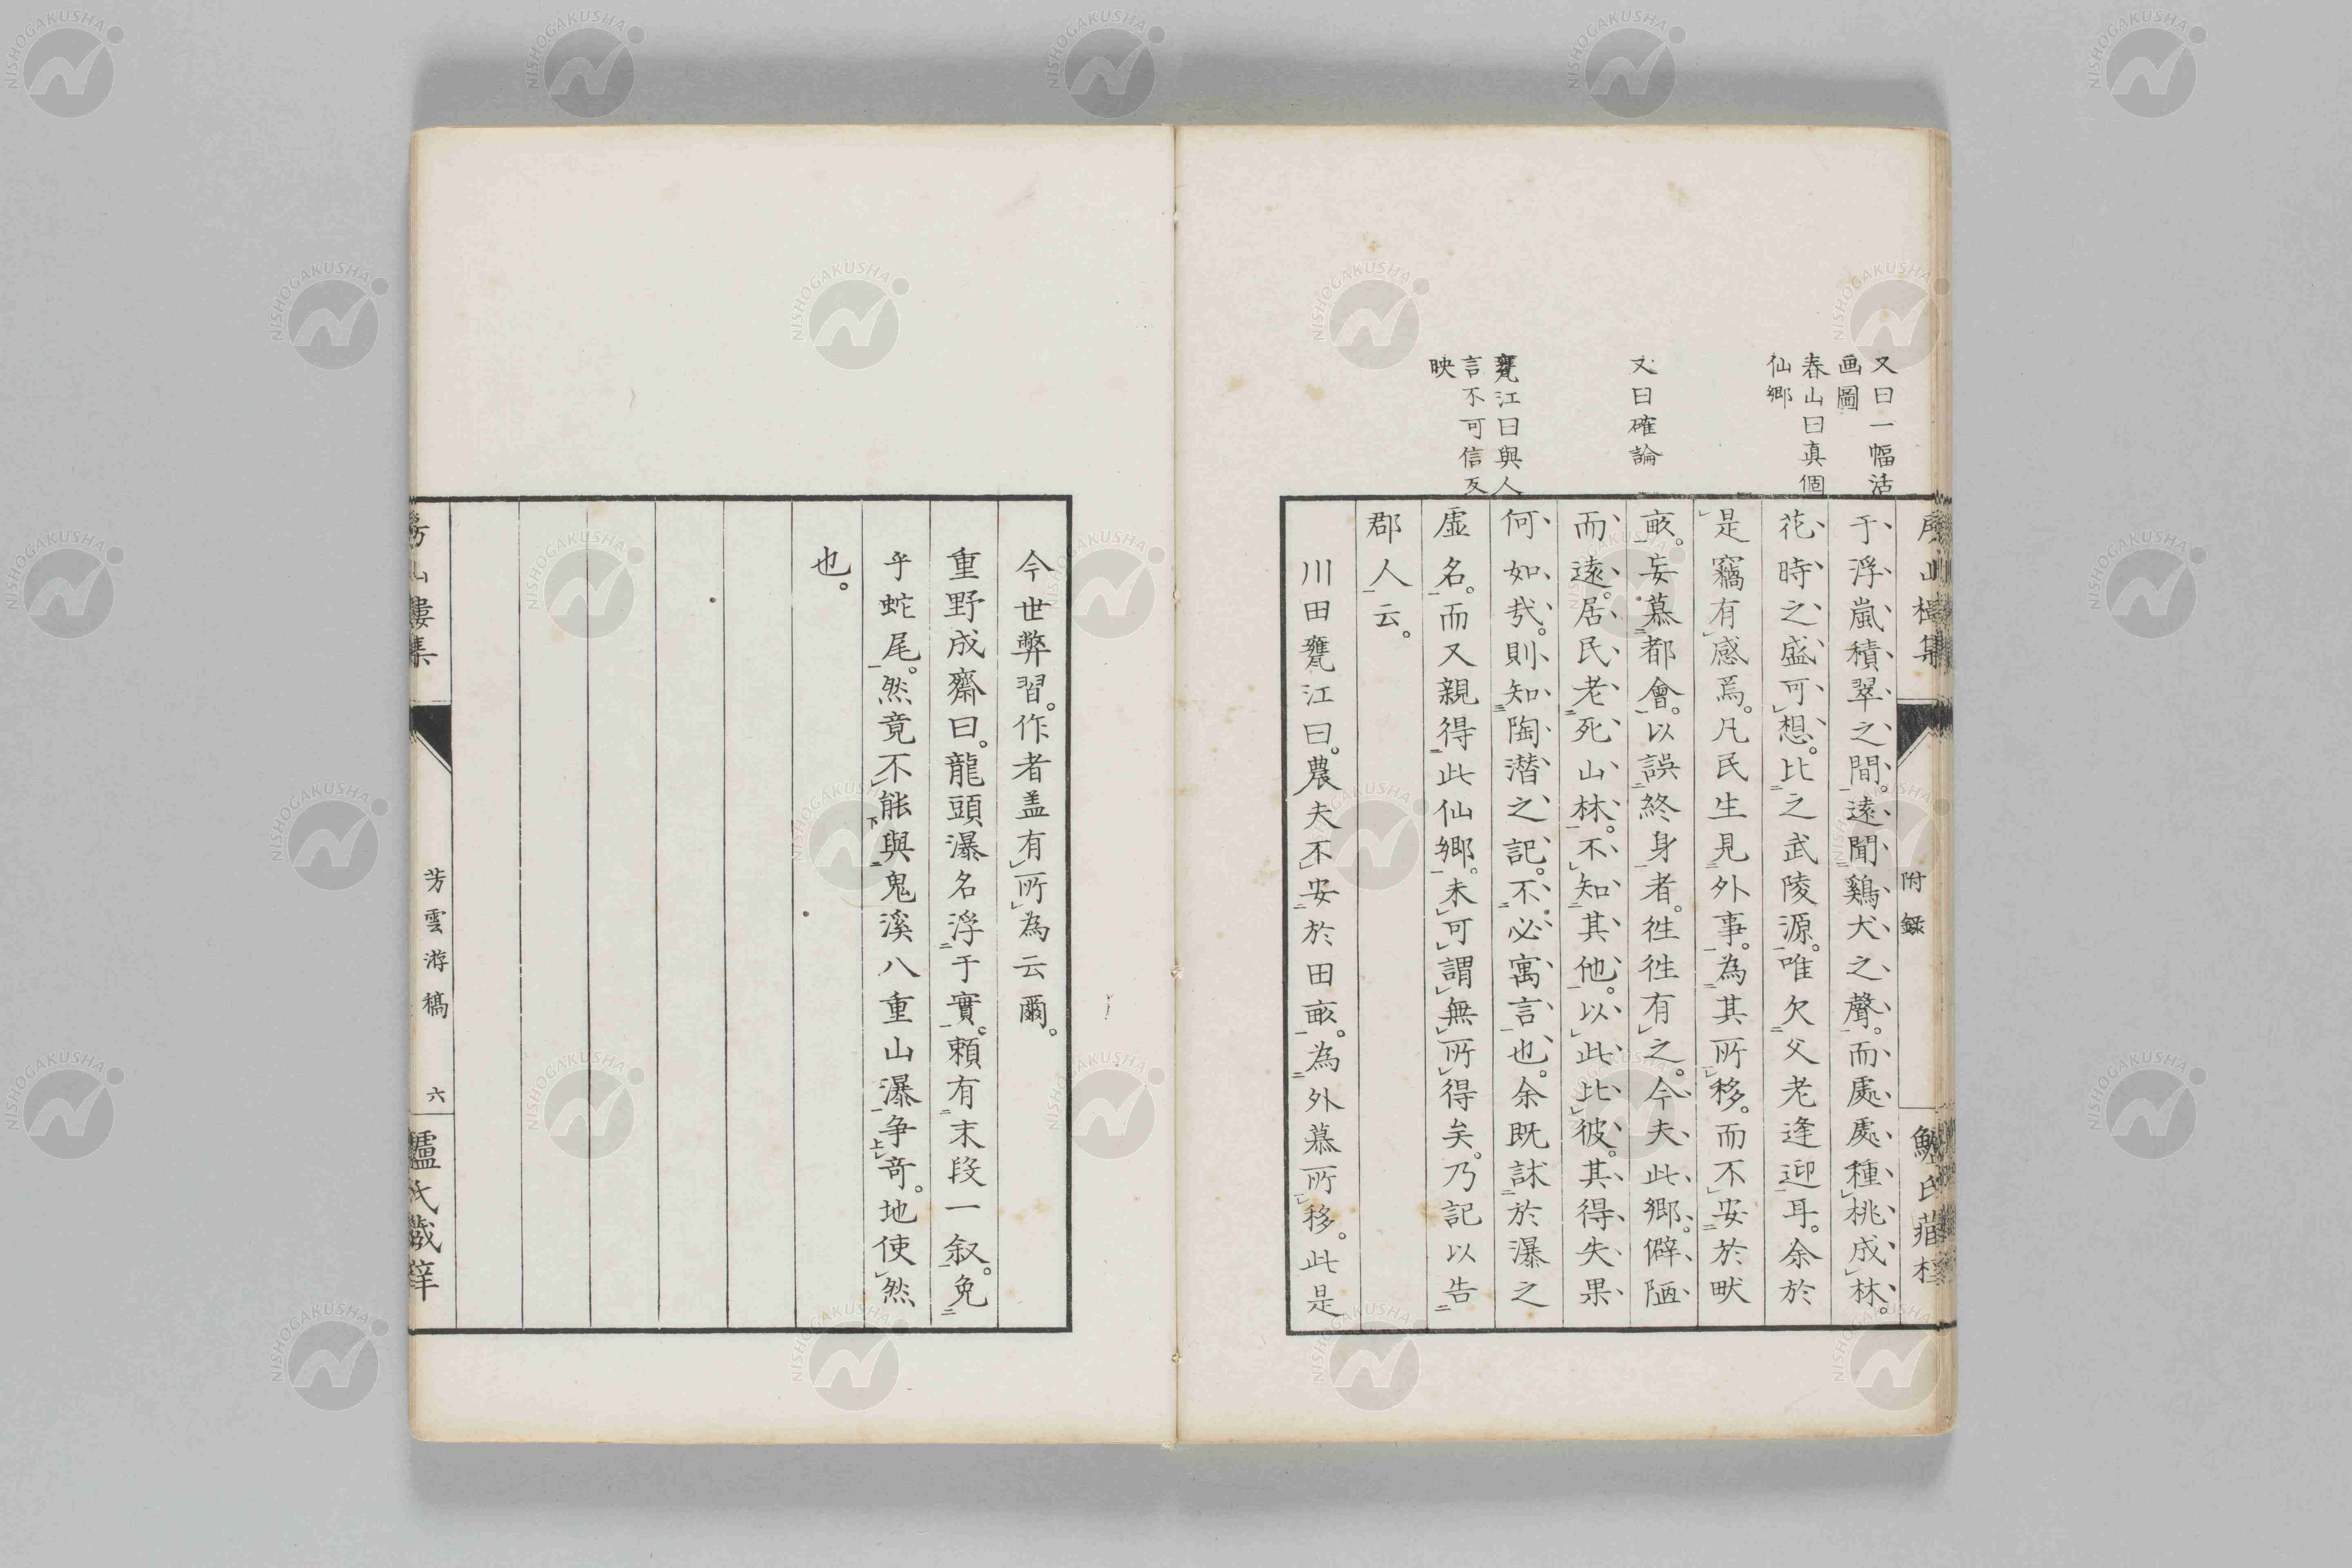 又曰一幅活
画圖
春山曰真個
仙郷
又曰確論
甕江曰與人
言不可信反
映
附錄
于浮嵐積翠之間。遠聞鷄犬之聲。而處處種桃成林。
花時之盛可想。比之武陵源。唯欠父老逢迎耳。余於
是竊有感焉。凡民生見外事。為其所移。而不安於畎
畝。妄慕都會。以誤終身者。徃徃有之。今夫此郷。僻陋
而遠。居民老死山林。不知其他。以此比彼。其得失果
何如哉。則知陶潛之記。不必寓言也。余既詸於瀑之
虛名。而又親得此仙郷。未可謂無所得矣。乃記以告
郡人云。
川田甕江曰。農夫不安於田畝。為外慕所移。此是
今世弊習。作者盖有所為云爾。
重野成齋曰。龍頭瀑名浮于實。頼有末段一叙。免
乎蛇尾。然竟不能與鬼溪八重山瀑争竒。地使然
也。
芳雲游稿
六
NISHOGAKUSHA